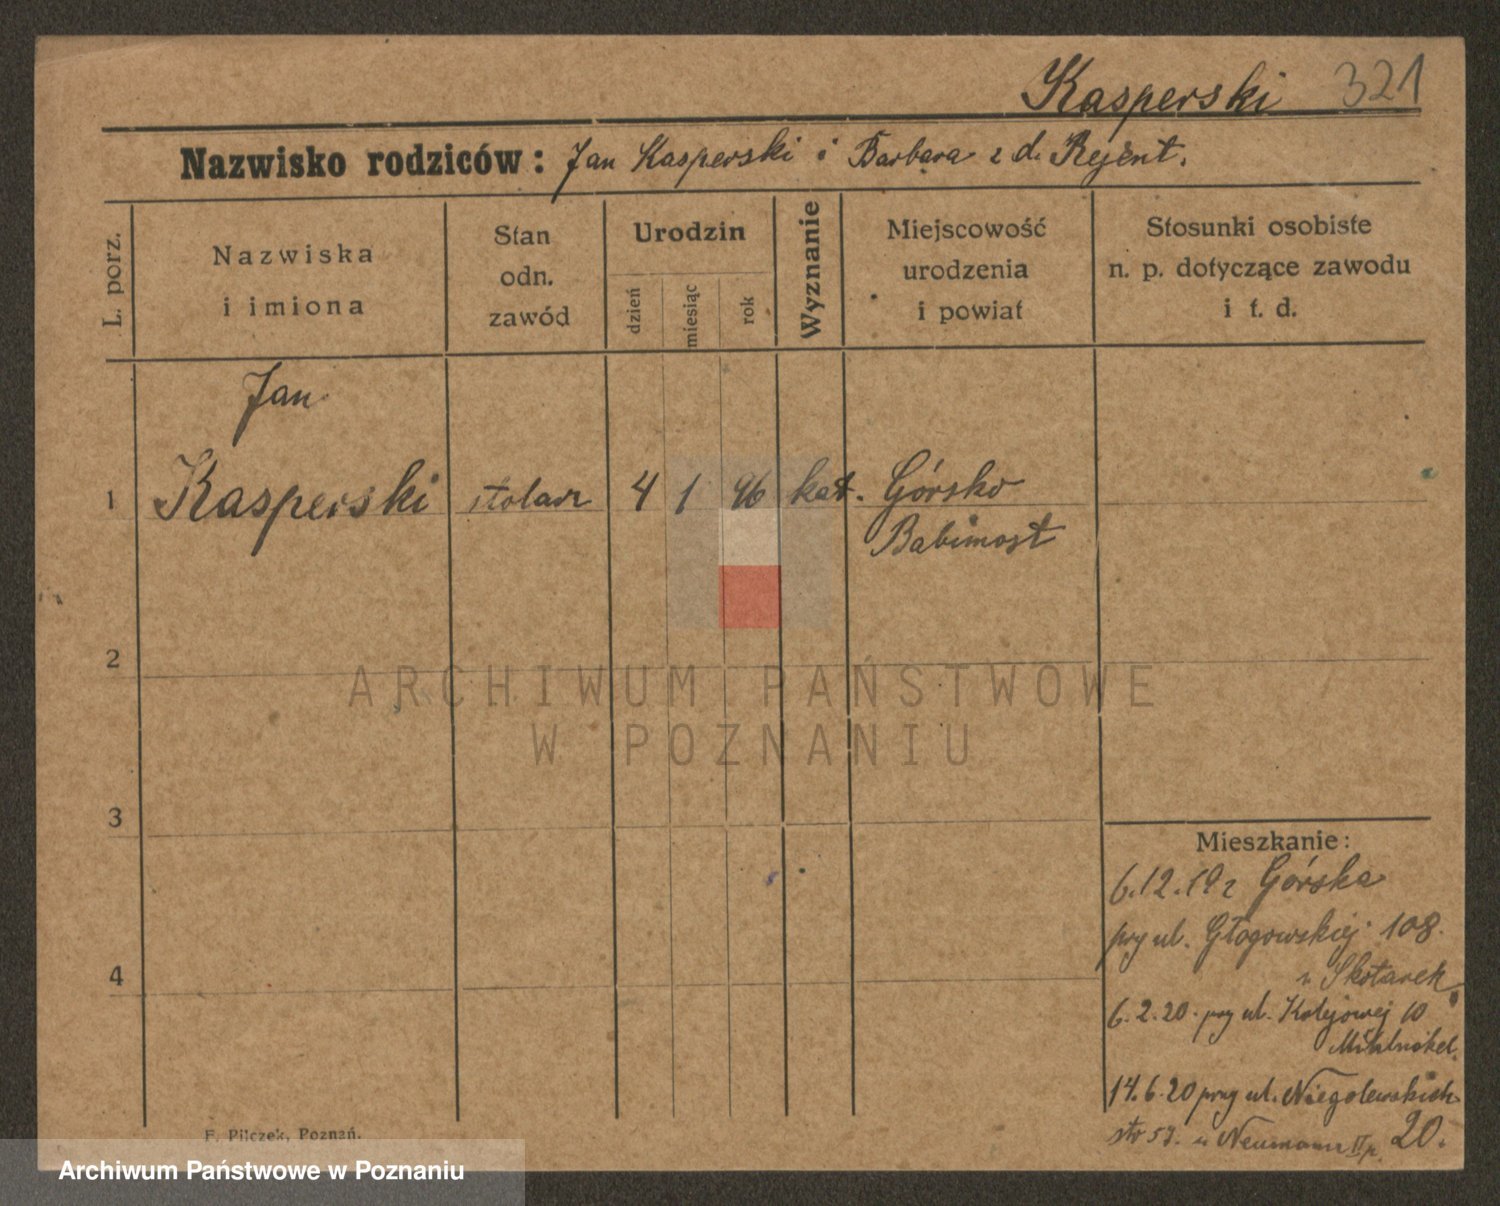 Kasperski 321
Nazwisko rodziców: Jan Kasperski i Barbara z d. Rejent.
L. porz.
Nazwiska
i imiona
Stan
odn.
zawód
Urodzin
dzień
miesiąc
rok
Wyznanie
Miejscowość
urodzenia
i powiat
Stosunki osobiste
n. p. dotyczące zawodu
i t. d.
Jan
1 Kasperski stolarz 4 1 96 kat. Górsko
Babimost
2
ARCHIWUM PAŃSTWOWE
W POZNANIU
3
Mieszkanie:
6.12.19 z Górska
przy ul. Głogowskiej 108.
u Skotarek
4
6.2.20. przy ul. Kolejowej 10
14.6.20 przy ul. Niegolewskich
20.
u Neumann II p.
F. Pilczek, Poznań.
Archiwum Państwowe w Poznaniu